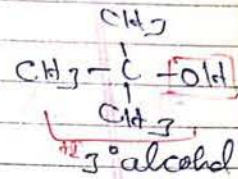 CH3
CH3-C-OH
CH3
3° alcohol